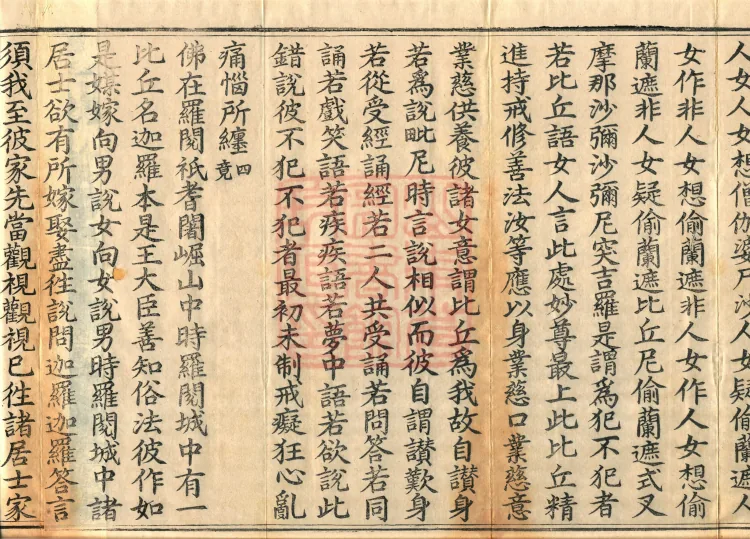 人女人女想僧伽婆尸沙人女疑偷蘭遮人
女作非人女想偷蘭遮非人女作人女想偷
蘭遮非人女疑偷蘭遮比丘尼偷蘭遮式叉
摩那沙彌沙彌尼突吉羅是謂為犯不犯者
若比丘語女人言此處妙尊最上此比丘精
進持戒修善法汝等應以身業慈口業慈意
業慈供養彼諸女意謂比丘為我故自讃身
若為說毗尼時言說相似而彼自謂讃歎身
若從受經誦經若二人共受誦若問答若同
誦若戲笑語若疾疾語若夢中語若欲說此
錯說彼不犯不犯者最初未制戒癡狂心亂
痛惱所纏四竟
佛在羅閱祇耆闍崛山中時羅閱城中有一
比丘名迦羅本是王大臣善知俗法彼作如
是媒嫁向男說女向女說男時羅閱城中諸
居士欲有所嫁娶盡徃說問迦羅迦羅答言
須我至彼家先當觀視觀視已徃諸居士家